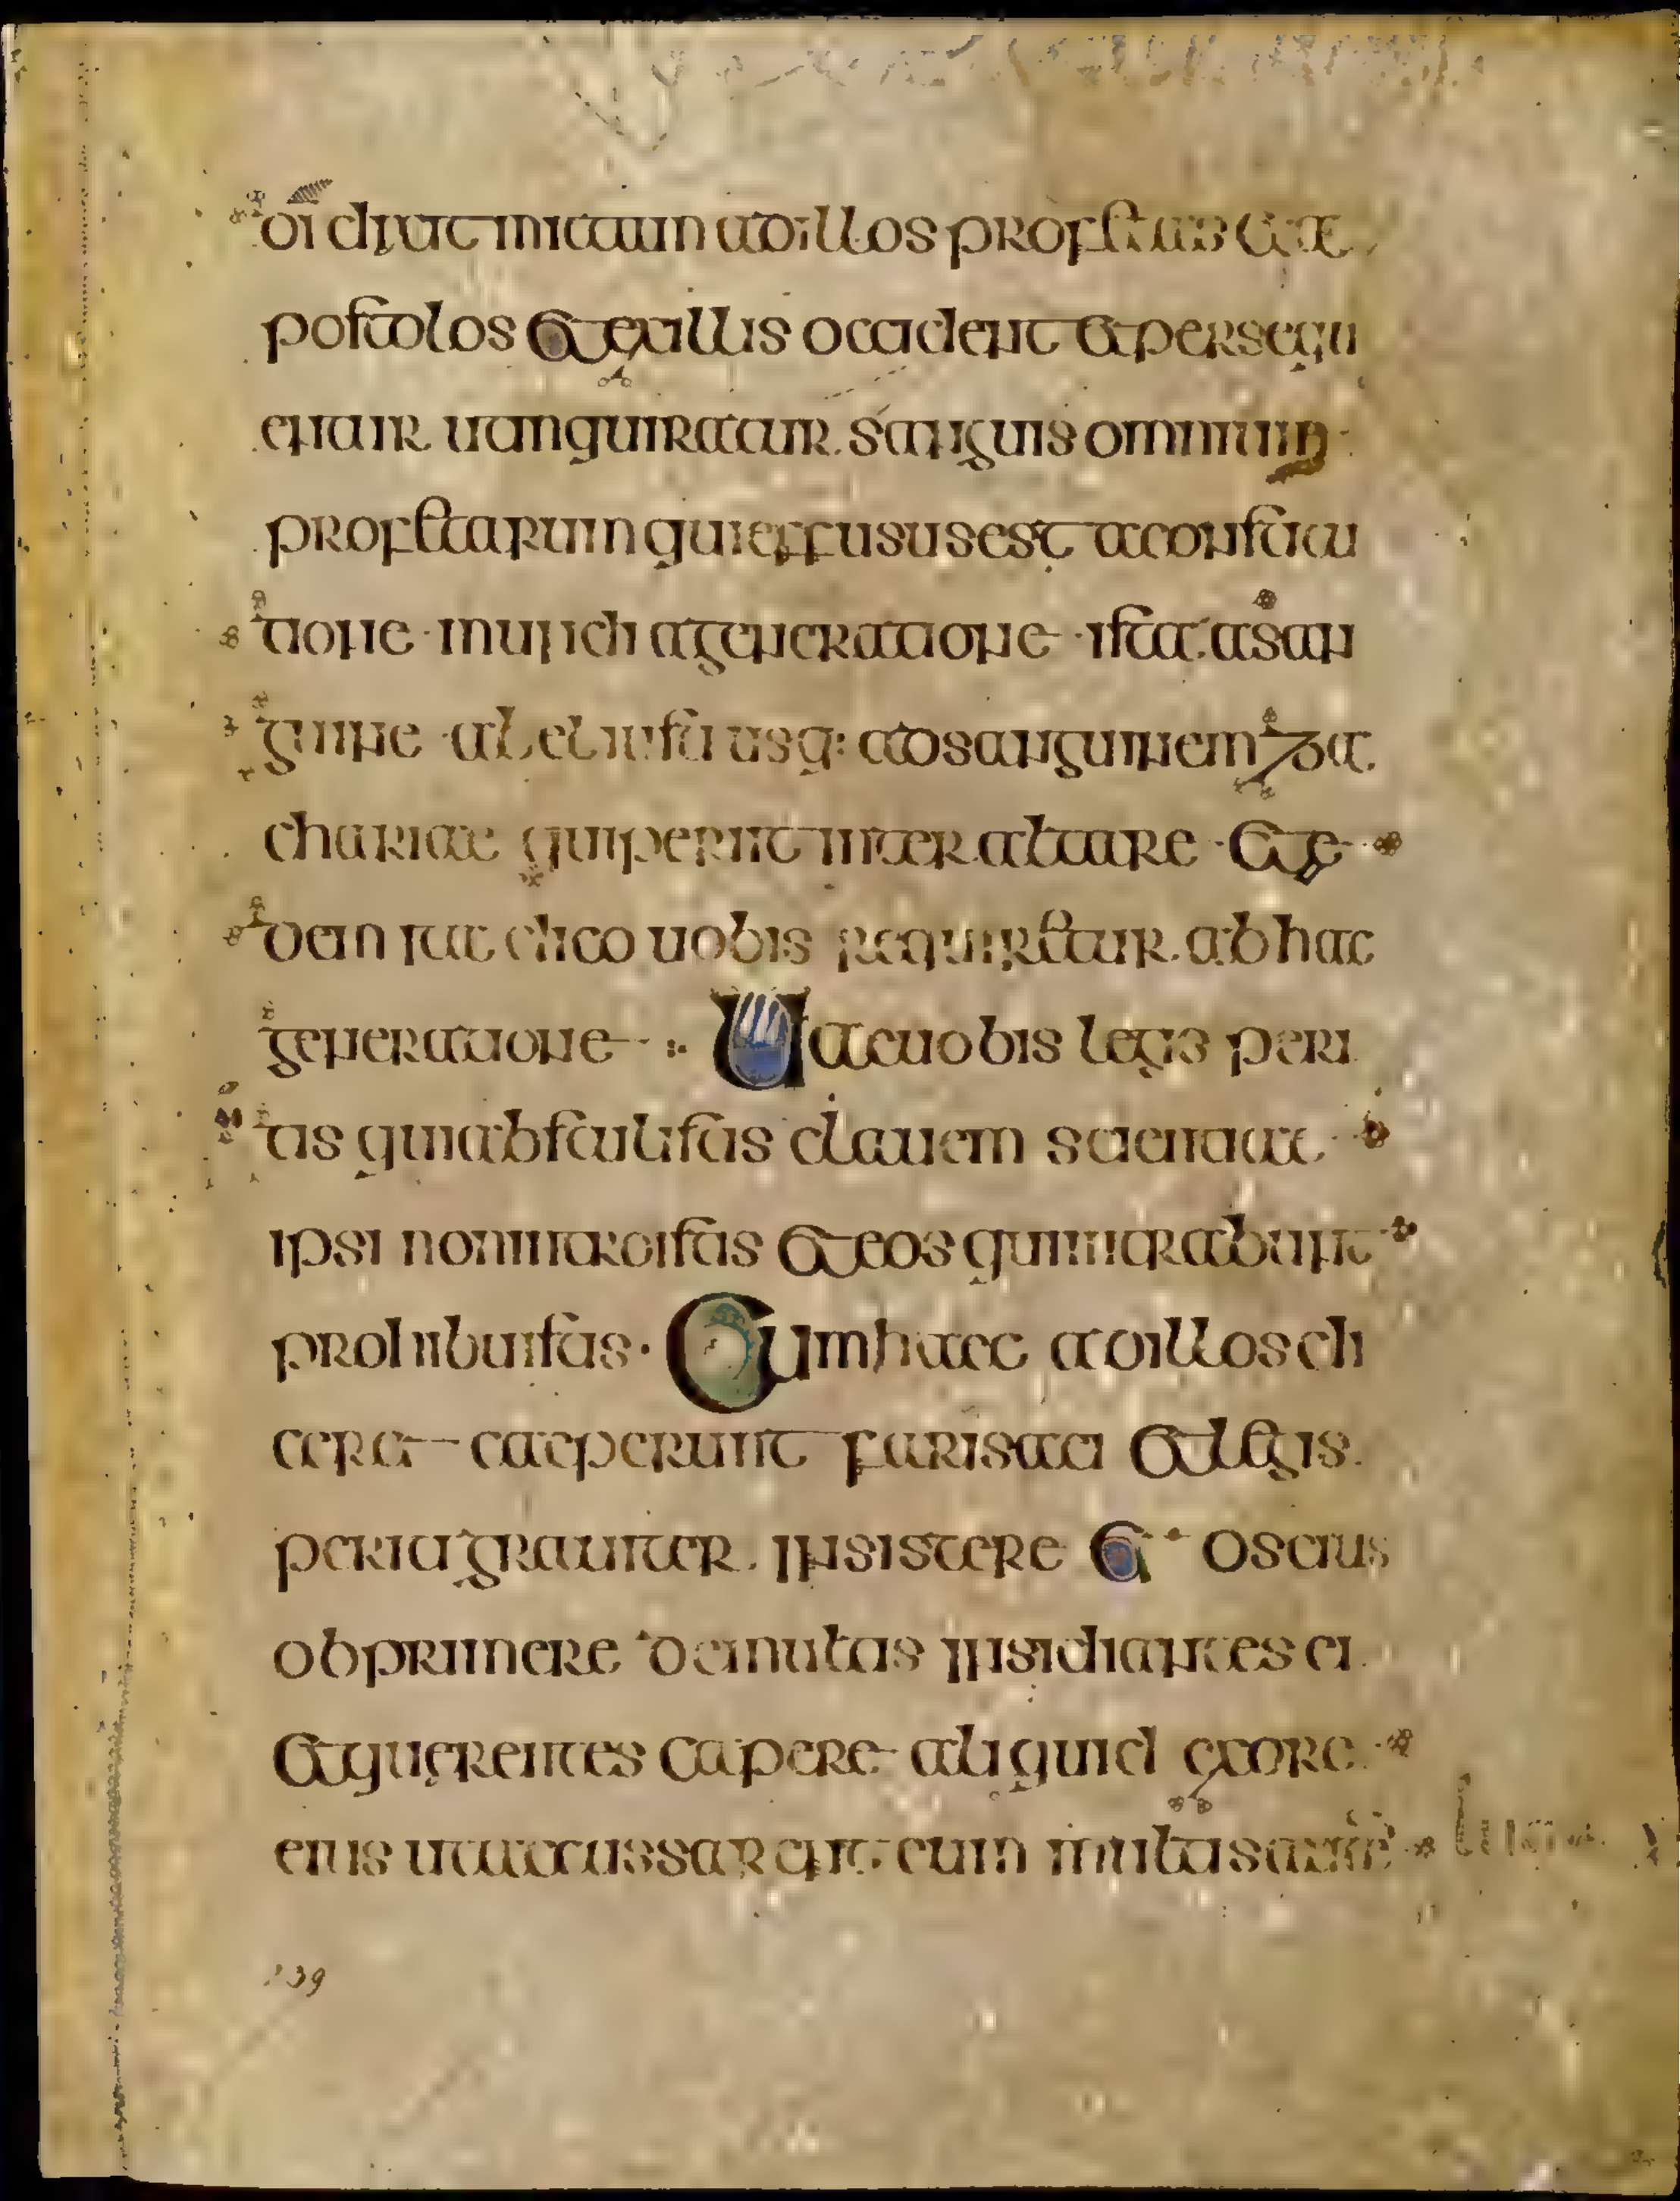 di dixit mittam ad illos profetas et a
postolos et ex illis occident et persequ
entur ut anquiratur sanguis omnium
profetarum qui effusus est a constitu
tione mundi a generatione ista a san
guine abel iusti usq: ad sanguinem za
chariae qui periit inter altare et ae
dem ita dico uobis requiretur ab hac
generatione Uae uobis legis peri
tis quia abstulistis clauem scientiae
ipsi non introistis et eos qui intrabunt
prohibuistis · Cum haec ad illos di
ceret caeperunt farisaei et legis
periti grauiter insistere et os eius
obprimere de multis insidiantes ei
et querentes capere aliquid ex ore
eius ut accussarent eum multis autē
139